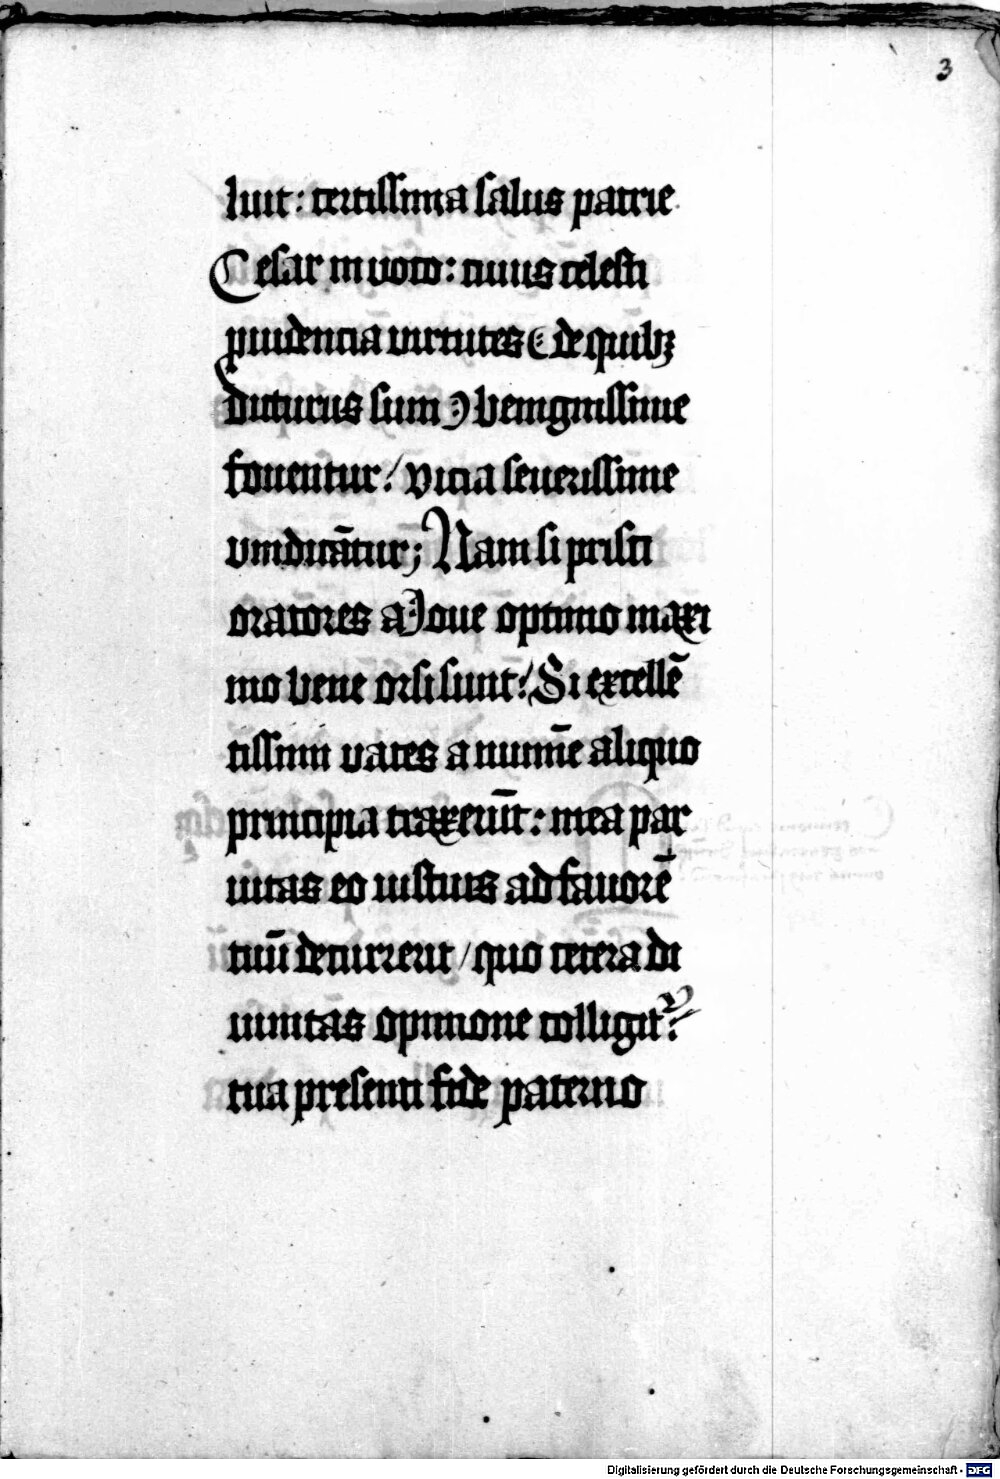 3
luit: certissima salus patrie
Cesar inuoco: cuius celesti
prudencia virtutes (de quibꝫ
dicturus sum) benignissime
fouentur / vicia seuerissime
vindicātur; Nam si prisci
oratores a Joue optimo maxi
mo bene orsi sunt: Si excellē
tissimi vates a numīe aliquo
principia traxerūt: mea par
uitas eo iustius ad fauorē
tuū decurrerit / quo cetera di
uinitās opinione colligitᷣ:
tua presenti fide paterno
Digitalisierung gefördert durch die Deutsche Forschungsgemeinschaft - DFG